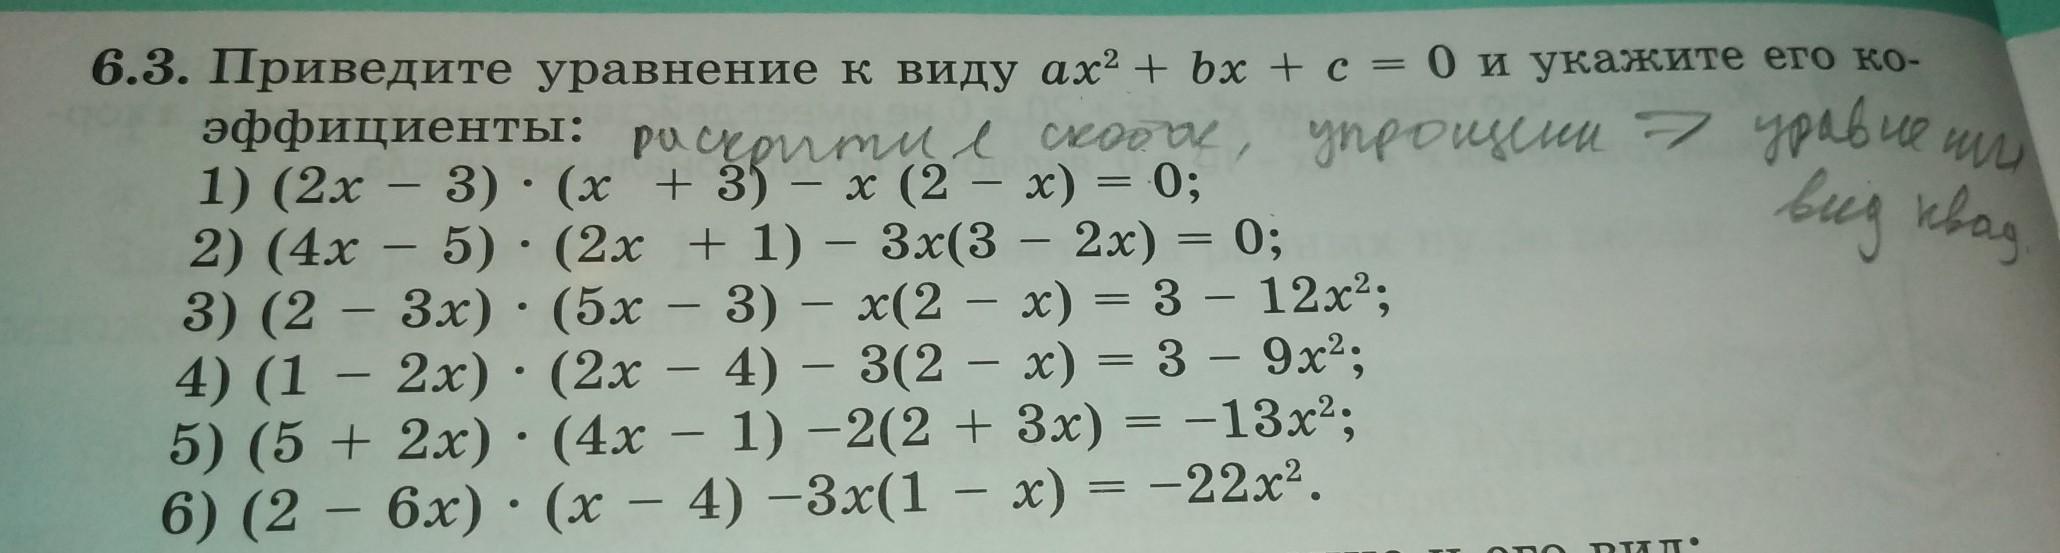 6.3. Приведите уравнение к виду ax² + bx + c = 0 и укажите его ко-
эффициенты:
упрощении ⇒ уравнении
вид квад.
1) (2x – 3) · (x + 3) – x (2 – x) = 0;
2) (4x – 5) · (2x + 1) – 3x(3 – 2x) = 0;
3) (2 – 3x) · (5x – 3) – x(2 – x) = 3 – 12x²;
4) (1 – 2x) · (2x – 4) – 3(2 – x) = 3 – 9x²;
5) (5 + 2x) · (4x – 1) –2(2 + 3x) = –13x²;
6) (2 – 6x) · (x – 4) –3x(1 – x) = –22x².
его вид: